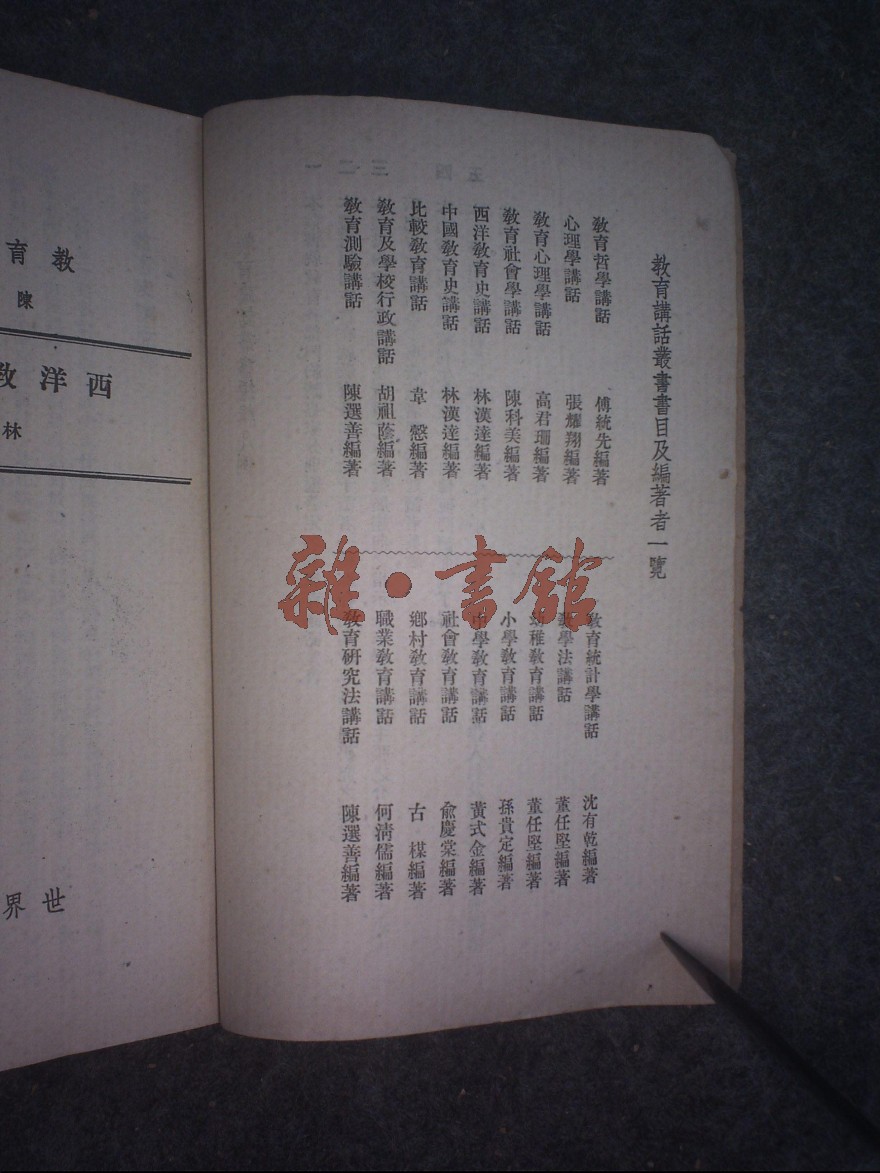 教育講話叢書書目及編著者一覽
教育哲學講話　傅統先編著
心理學講話　張耀翔編著
教育心理學講話　高君珊編著
教育社會學講話　陳科美編著
西洋教育史講話　林漢達編著
中國教育史講話　林漢達編著
比較教育講話　韋　慤編著
教育及學校行政講話　胡祖蔭編著
教育測驗講話　陳選善編著
教育統計學講話　沈有乾編著
教學法講話　董任堅編著
幼稚教育講話　董任堅編著
小學教育講話　孫貴定編著
中學教育講話　黃式金編著
社會教育講話　俞慶棠編著
鄉村教育講話　古　楳編著
職業教育講話　何淸儒編著
教育研究法講話　陳選善編著
教育
陳
西洋教
林
世界
雜·書館